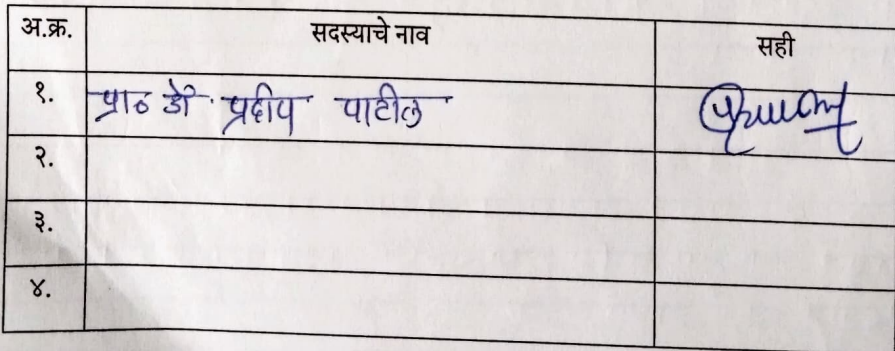 अ.क्र. सदस्याचे नाव सही
१. प्रा० डॉ. प्रदीप पाटील
२.
३.
४.